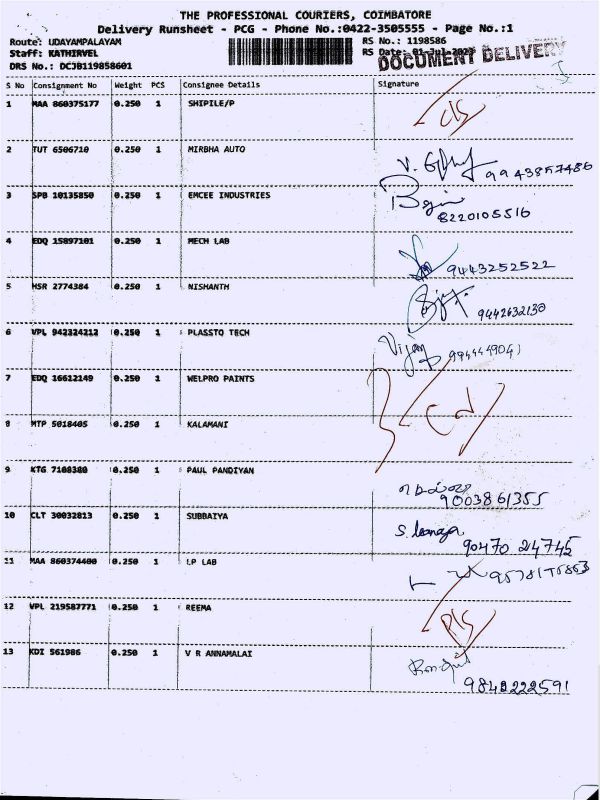 THE PROFESSIONAL COURIERS, COIMBATORE
Delivery Runsheet - PCG - Phone No.:0422-3505555 - Page No.:1
Route: UDAYAMPALAYAM RS No.: 1198586
Staff: KATHIRVEL RS Date: 01-Jul-2023 DOCUMENT DELIVERY
DRS No.: DCJB119858601
S No Consignment No Weight PCS Consignee Details Signature
1 MAA 860375177 0.250 1 SHIPILE/P
2 TUT 6506710 0.250 1 MIRBHA AUTO
9943857486
3 SPB 10135850 0.250 1 EMCEE INDUSTRIES
8220105516
4 EDQ 15897101 0.250 1 MECH LAB
9443252522
5 HSR 2774384 0.250 1 NISHANTH
9442632130
6 VPL 942324212 0.250 1 PLASSTO TECH
Vijay
7 EDQ 16612149 0.250 1 WELPRO PAINTS
8 MTP 5018405 0.250 1 KALAMANI
9 KTG 7108380 0.250 1 PAUL PANDIYAN
9003861355
10 CLT 30032813 0.250 1 SUBBAIYA
90470 24745
11 MAA 860374400 0.250 1 LP LAB
12 VPL 219587771 0.250 1 REEMA
13 KDI 561986 0.250 1 V R ANNAMALAI